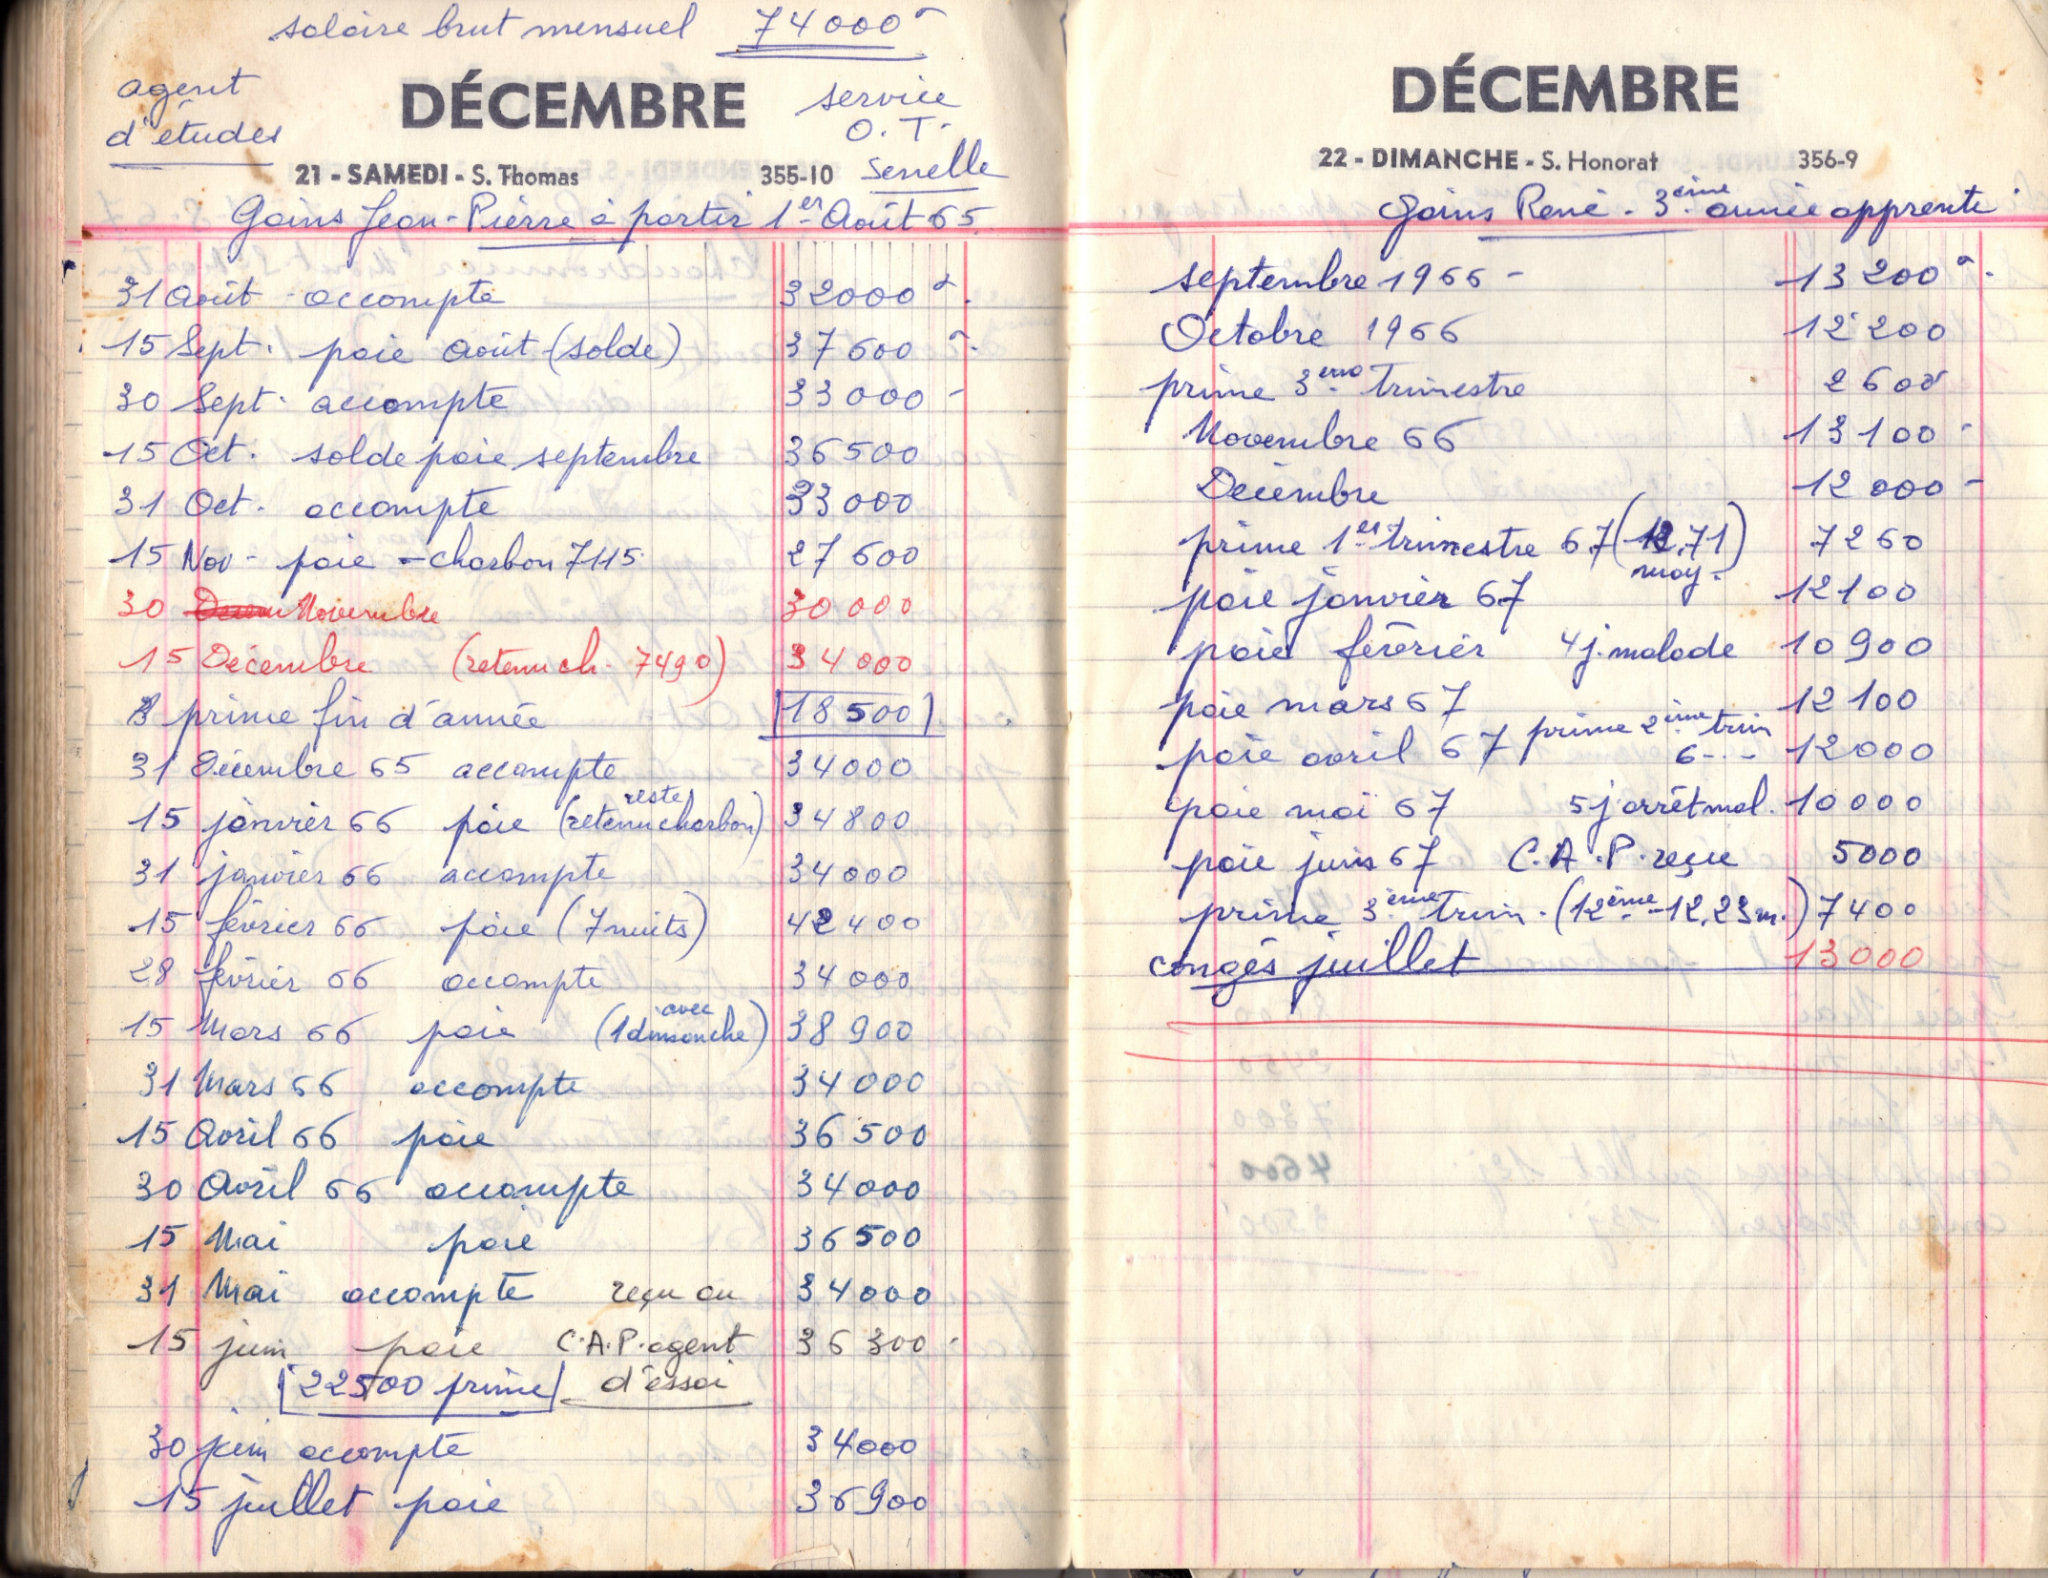 salaire brut mensuel 74000
agent
d'études
DÉCEMBRE
service
O.T.
Senelle
21 - SAMEDI - S. Thomas 355-10
Gains Jean-Pierre à partir 1er Août 65
31 Août accompte 32000
15 Sept. paie Août (solde) 37600
30 Sept. accompte 33000 -
15 Oct. solde paie septembre 36500
31 Oct. accompte 33000
15 Nov - paie - charbon 7115 27600
30 Novembre 30000
15 Décembre (retenu ch. 7490) 34000
prime fin d'année 18500
31 Décembre 65 accompte 34000
15 janvier 66 paie (reste retenu charbon) 34800
31 janvier 66 accompte 34000
15 février 66 paie (7 nuits) 42400
28 février 66 accompte 34000
15 Mars 66 paie (avec 1 dimanche) 38900
31 Mars 66 accompte 34000
15 Avril 66 paie 36500
30 Avril 66 accompte 34000
15 Mai paie 36500
31 Mai accompte reçu au 34000
15 juin paie C.A.P. agent 36300
22500 prime d'essai
30 juin accompte 34000
15 juillet paie 36900
DÉCEMBRE
22 - DIMANCHE - S. Honorat 356-9
Gains René - 3ème année apprenti
septembre 1966 - 13200
Octobre 1966 12200
prime 3eme trimestre 2600
Novembre 66 13100 -
Décembre 12000 -
prime 1er trimestre 67 (12,71) 7260
moy.
paie janvier 67 12100
paie février 4j. malade 10900
paie mars 67 12100
prime 2ème trim
paie avril 67 6 - - 12000
paie mai 67 5j arrêt mal. 10000
paie juin 67 C.A.P. reçue 5000
prime 3ème trim. (12ème - 12,23m.) 7400
congés juillet 13000